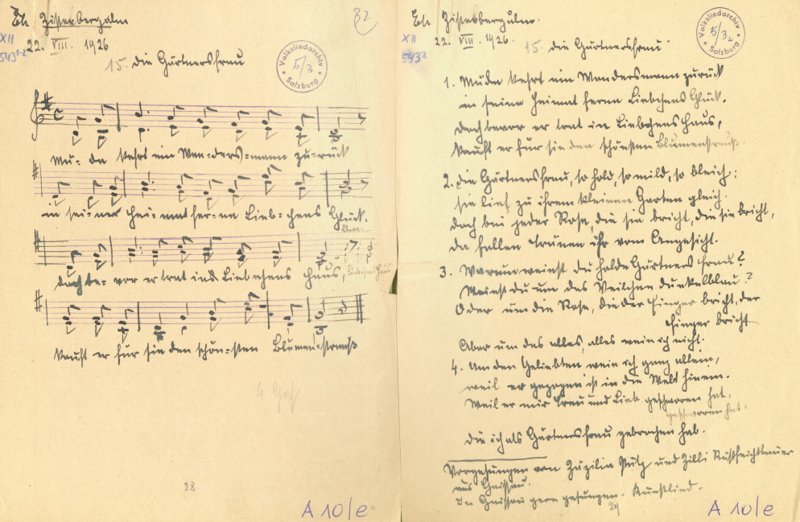 Eh. Zisterbergalm
32
XII
543¹⁻²
22. VIII. 1926
15. die Gärtnersfrau
Volksliedarchiv
5/3
Salzburg
Mü-de kehrt ein Wan-ders-mann zu-rück
in sei-ner Hei-mat fer-ne Lieb-chens Glück.
doch be-vor er trat ins Liebchens Haus,
kauft er für sie den schön-sten Blumen-strauß
28
A 10/e
Eh. Zisterbergalm.
XII
543²
22. VIII. 1926
15. die Gärtnersfrau.
Volksliedarchiv
5/3
Salzburg
1. Müde kehrt ein Wandersmann zurück
in seine Heimat ferne Liebchens Glück.
Doch bevor er trat in Liebchens Haus,
kauft er für sie den schönsten Blumenstrauß.
2. die Gärtnersfrau, so hold, so mild, so bleich;
sie lief zu ihrem kleinen Garten gleich.
doch bei jeder Rose, die sie bricht, die sie bricht,
da fallen Tränen ihr vom Angesicht.
3. Warum weinst du holde Gärtnersfrau?
Weinst du um das Veilchen dunkelblau?
Oder um die Rose, die der Finger bricht, der
Finger bricht
Aber um das alles, alles wein ich nicht.
4. Um den Geliebten wein ich ganz allein,
weil er gezogen ist in die Welt hinein.
Weil er mir Treu und Lieb geschworen hat,
geschworen hat.
die ich als Gärtnersfrau gebrochen hab.
Vorgesungen von und Zilli
aus Gnissau.
In Gnissau gern gesungen. Kunstlied.
29
A 10/e